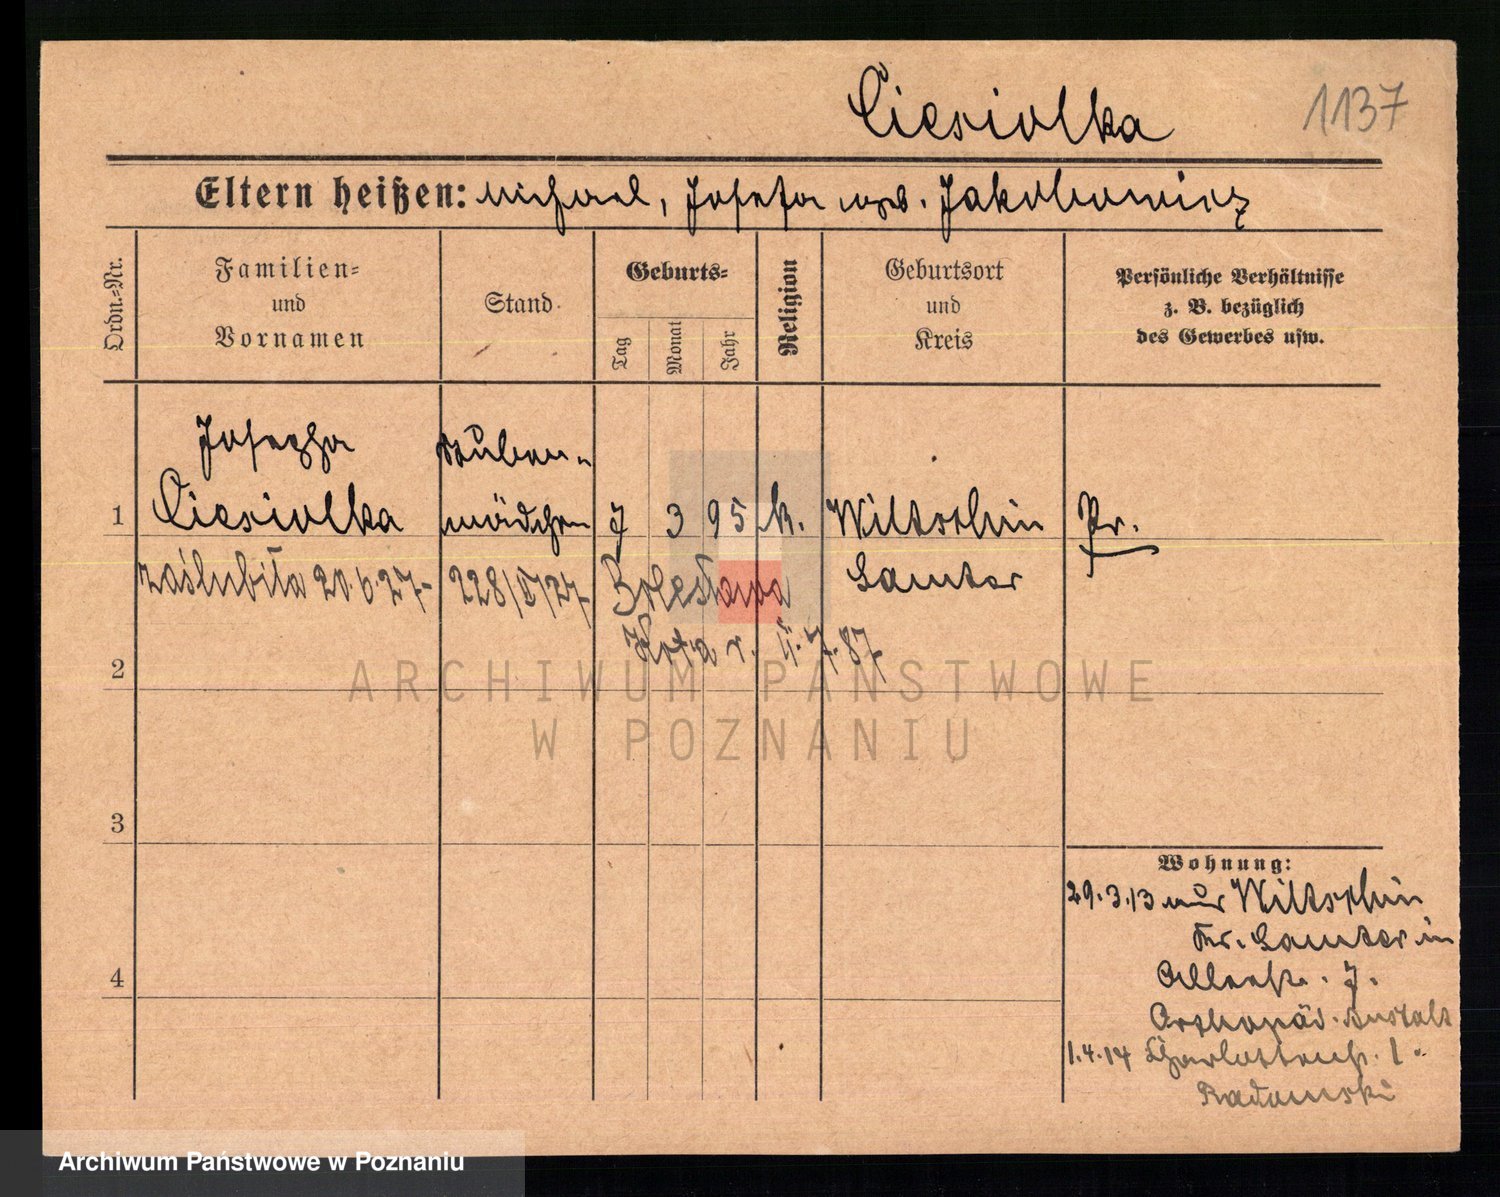 Ciesiolka 1137
Eltern heißen: Michael, Josefa geb. Jakobowicz
Ordn.-Nr.
Familien-
und
Vornamen
Stand
Geburts-
Tag
Monat
Jahr
Religion
Geburtsort
und
Kreis
Persönliche Verhältnisse
z. B. bezüglich
des Gewerbes usw.
Josepha Stuben-
1 Ciesiolka mädchen 7 3 95 k. Wiltschin Pr.
zaślubiła 20.6.27- 228/V/27 Bolesława Samter
Kota r. 4.7.87
2
3
4
Wohnung:
29.3.13 aus Wiltschin
Kr. Samter in
Allerstr. 7.
Orthopäd. Anstalt
1.4.14 Charlottenstr. 1.
Radomski
ARCHIWUM PAŃSTWOWE
W POZNANIU
Archiwum Państwowe w Poznaniu